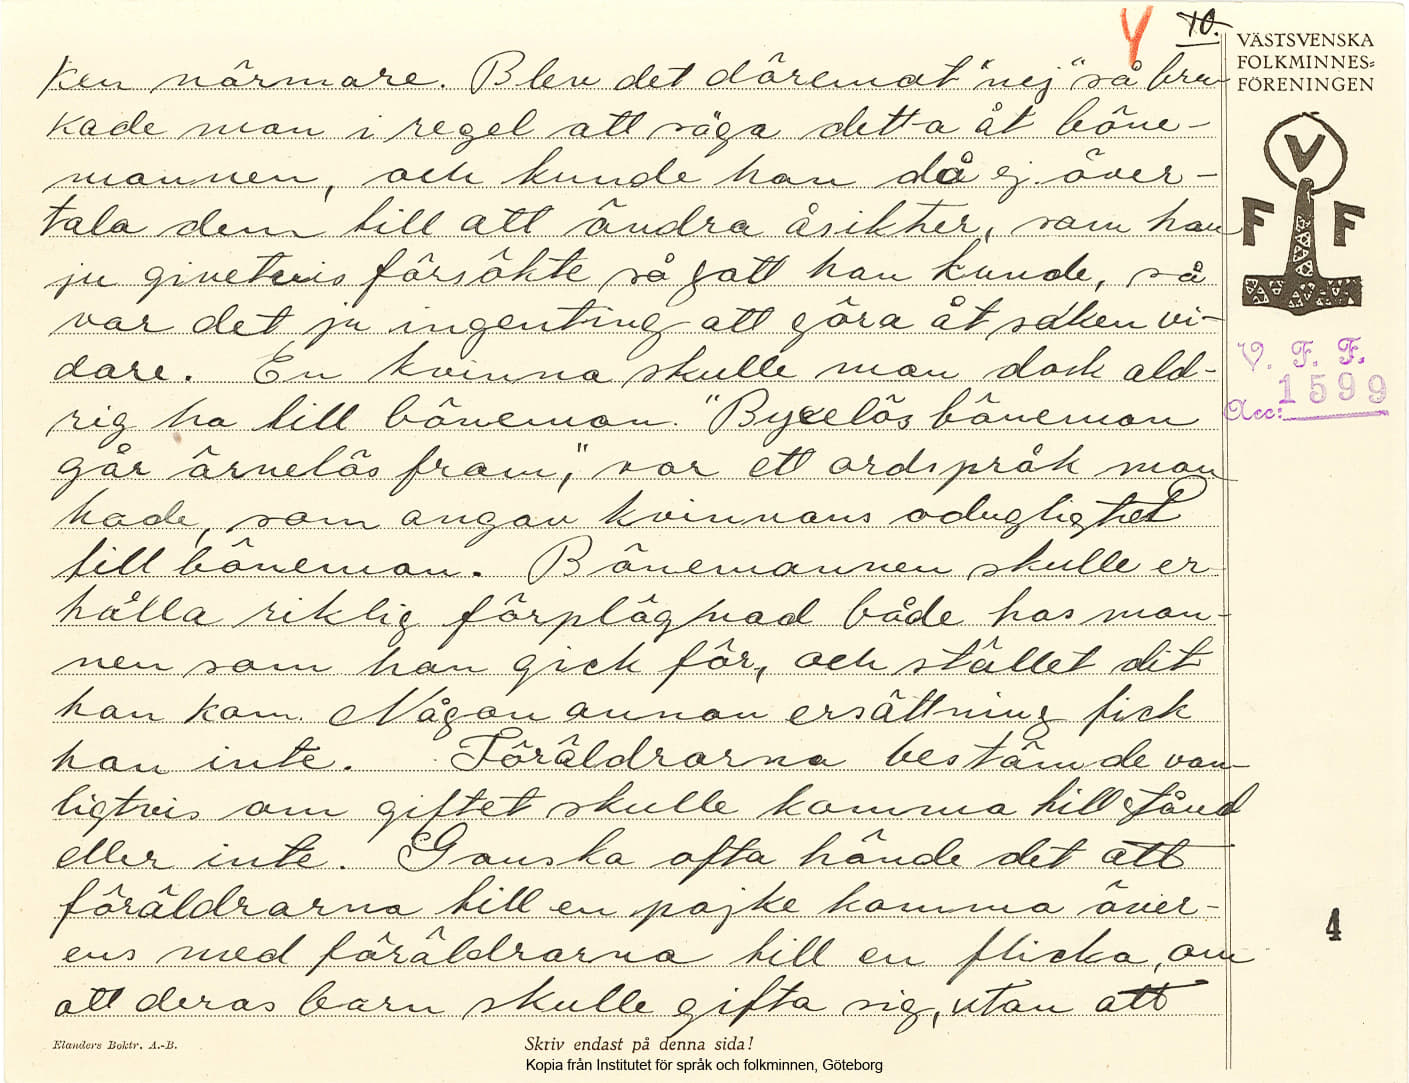 10.
VÄSTSVENSKA
FOLKMINNES=
FÖRENINGEN
V
F F
V. F. F.
1599
Acc:
ken närmare. Blev det däremot "nej" så bru
kade man i regel att säga detta åt böne-
mannen, och kunde han då ej över-
tala dem till att ändra åsikter, som han
ju givetvis försökte så gott han kunde, så
var det ju ingenting att göra åt saken vi-
dare. En kvinna skulle man dock ald-
rig ha till böneman. "Byxelös böneman
går ärnelös fram," var ett ordspråk man
hade, som angav kvinnans oduglighet
till böneman. Bönemannen skulle er
hålla riklig förplägnad både hos man-
nen som han gick för, och stället dit
han kom. Någon annan ersättning fick
han inte. Föräldrarna bestämde van-
ligtvis om giftet skulle komma till stånd
eller inte. Ganska ofta hände det att
föräldrarna till en pojke komma över-
ens med föräldrarna till en flicka, om
att deras barn skulle gifta sig, utan att
4
Elanders Boktr. A.-B.
Skriv endast på denna sida!
Kopia från Institutet för språk och folkminnen, Göteborg